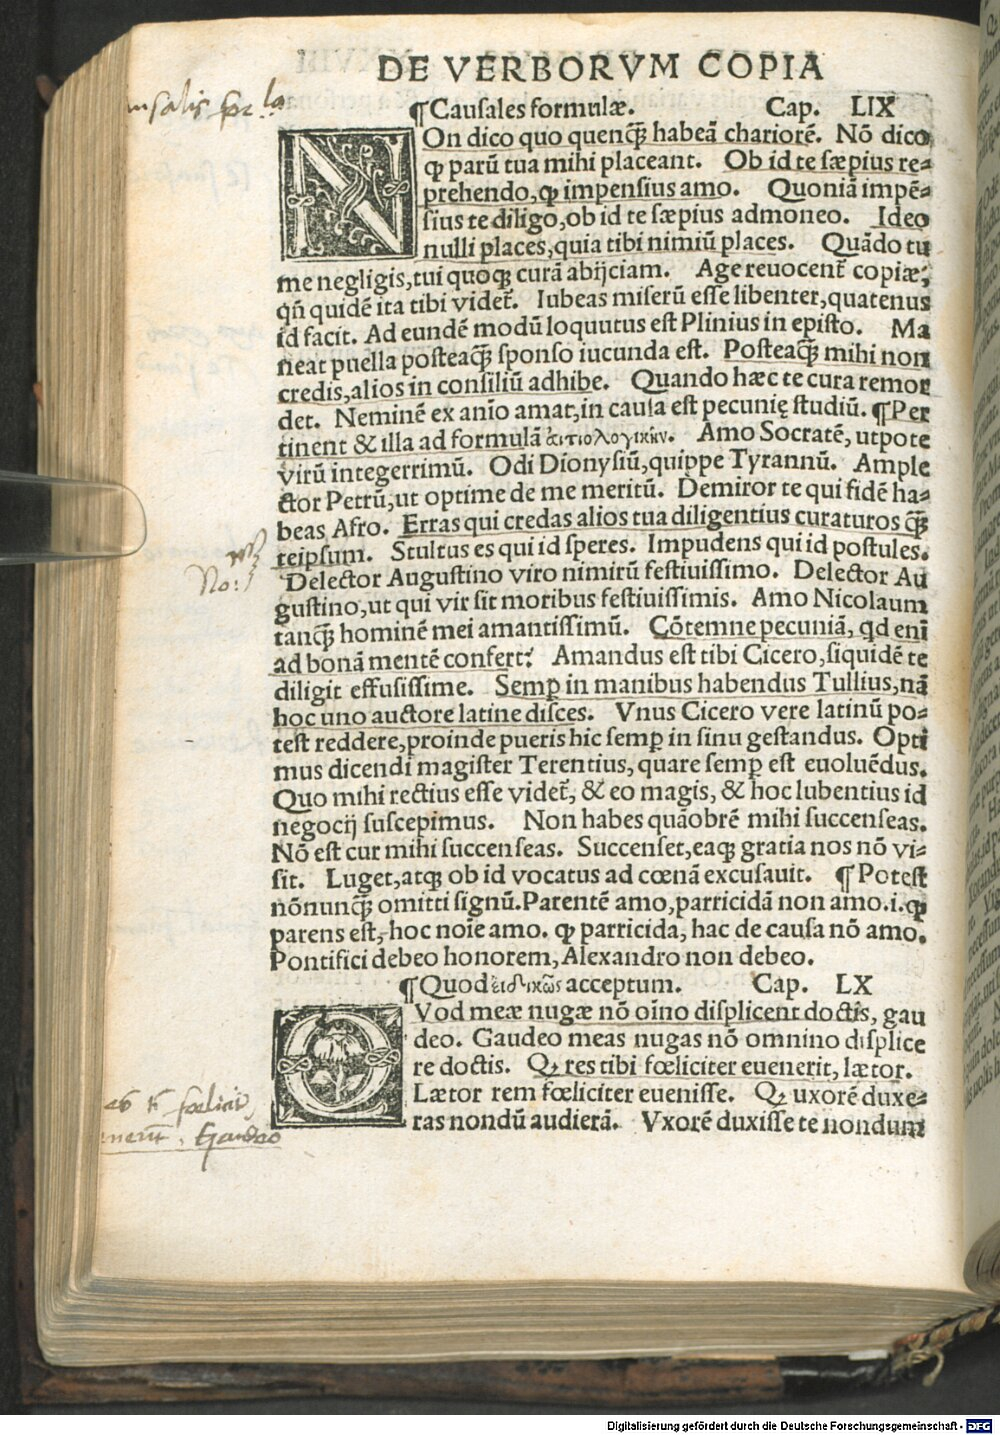 DE VERBORVM COPIA
¶Cauſales formulæ. Cap. LIX
NOn dico quo quenq̃ habeā chariorē. Nō dico,
ꝙ parū tua mihi placeant. Ob id te ſæpius re⸗
prehendo, ꝙ impenſius amo. Quoniā impē⸗
ſius te diligo, ob id te ſæpius admoneo. Ideo
nulli places, quia tibi nimiū places. Quādo tu
me negligis, tui quoqꝫ curā abijciam. Age reuocent̄ copiæ,
qn̄ quidē ita tibi videt̄. Iubeas miſerū eſſe libenter, quatenus
id facit. Ad eundē modū loquutus eſt Plinius in epiſto. Ma
neat puella poſteaq̃ ſponſo iucunda eſt. Poſteaq̃ mihi non
credis, alios in conſiliū adhibe. Quando hæc te cura remor
det. Neminē ex anīo amat, in cauſa eſt pecunię ſtudiū. ¶Per
tinent & illa ad formulā ἀιτιολογικὴν. Amo Socratē, utpote
virū integerrimū. Odi Dionyſiū, quippe Tyrannū. Ample
ctor Petrū, ut optime de me meritū. Demiror te qui fidē ha⸗
beas Afro. Erras qui credas alios tua diligentius curaturos q̃
teipſum. Stultus es qui id ſperes. Impudens qui id poſtules.
Delector Auguſtino viro nimirū feſtiuiſſimo. Delector Au
guſtino, ut qui vir ſit moribus feſtiuiſſimis. Amo Nicolaum
tanq̃ hominē mei amantiſſimū. Cōtemne pecuniā, qd enī
ad bonā mentē confert? Amandus eſt tibi Cicero, ſiquidē te
diligit effuſiſſime. Semꝑ in manibus habendus Tullius, nā
hoc uno auctore latine diſces. Vnus Cicero vere latinū po⸗
teſt reddere, proinde pueris hic ſemꝑ in ſinu geſtandus. Opti
mus dicendi magiſter Terentius, quare ſemꝑ eſt euoluēdus.
Quo mihi rectius eſſe videt̄, & eo magis, & hoc lubentius id
negocij ſuſcepimus. Non habes quāobrē mihi ſuccenſeas.
Nō eſt cur mihi ſuccenſeas. Succenſet, eaqꝫ gratia nos nō vi⸗
ſit. Luget, atqꝫ ob id vocatus ad cœnā excuſauit. ¶Poteſt
nōnunq̃ omitti ſignū. Parentē amo, parricidā non amo .i. ꝙ
parens eſt, hoc noīe amo. ꝙ parricida, hac de cauſa nō amo.
Pontifici debeo honorem, Alexandro non debeo.
¶Quod εἰδικῶς acceptum. Cap. LX
QVod meæ nugæ nō oīno diſplicent doctis, gau
deo. Gaudeo meas nugas nō omnino diſplice
re doctis. Qꝫ res tibi fœliciter euenerit, lætor.
Lætor rem fœliciter eueniſſe. Qꝫ uxorē duxe⸗
ras nondū audierā. Vxorē duxiſſe te nondum
No:
fœlicit
Gaudeo
Digitalisierung gefördert durch die Deutsche Forschungsgemeinschaft - DFG